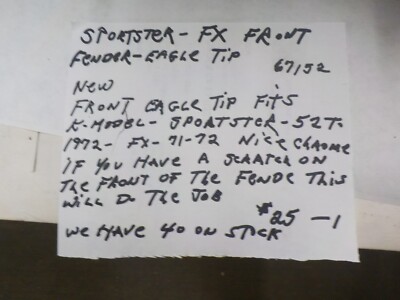 SPORTSTER - FX FRONT
FENDER - EAGLE TIP
67152
NEW
FRONT EAGLE TIP FITS
K-MODEL - SPORTSTER - 52 TO
1972 - FX - 71-72 NICE CHROME
IF YOU HAVE A SCRATCH ON
THE FRONT OF THE FENDE THIS
WILL DO THE JOB
$25 - 1
WE HAVE 40 ON STOCK